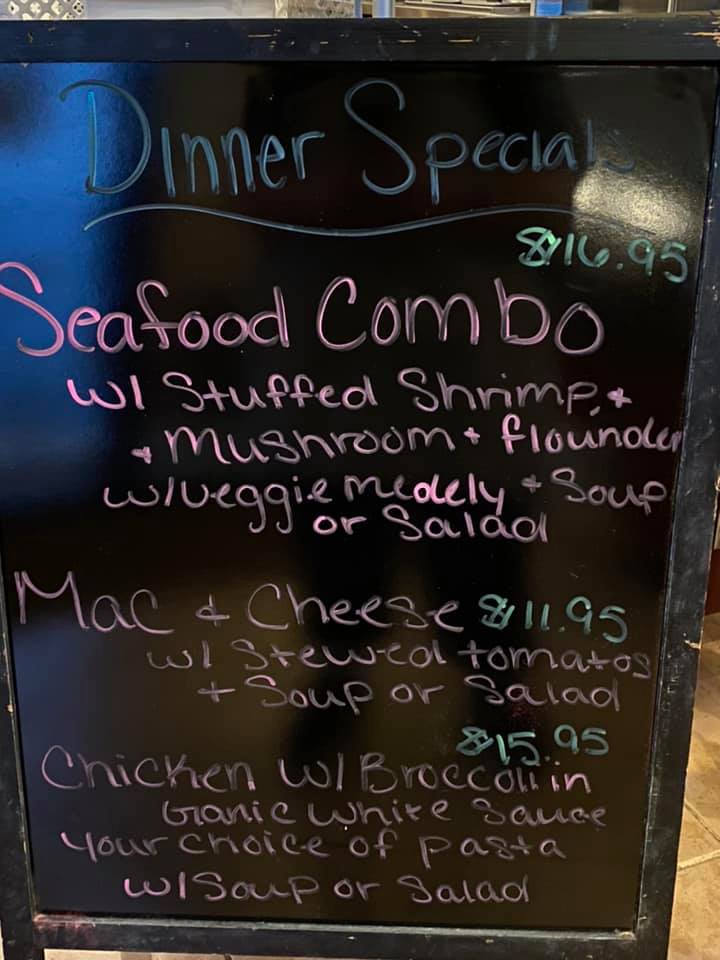 Dinner Specials
$16.95
Seafood Combo
w/ Stuffed Shrimp, +
+ Mushroom + flounder
w/veggie medely + Soup
or Salad
Mac & Cheese $11.95
w/ Stewed tomatos
+ Soup or Salad
$15.95
Chicken w/ Broccoli in
Garlic White Sauce
your choice of pasta
w/Soup or Salad